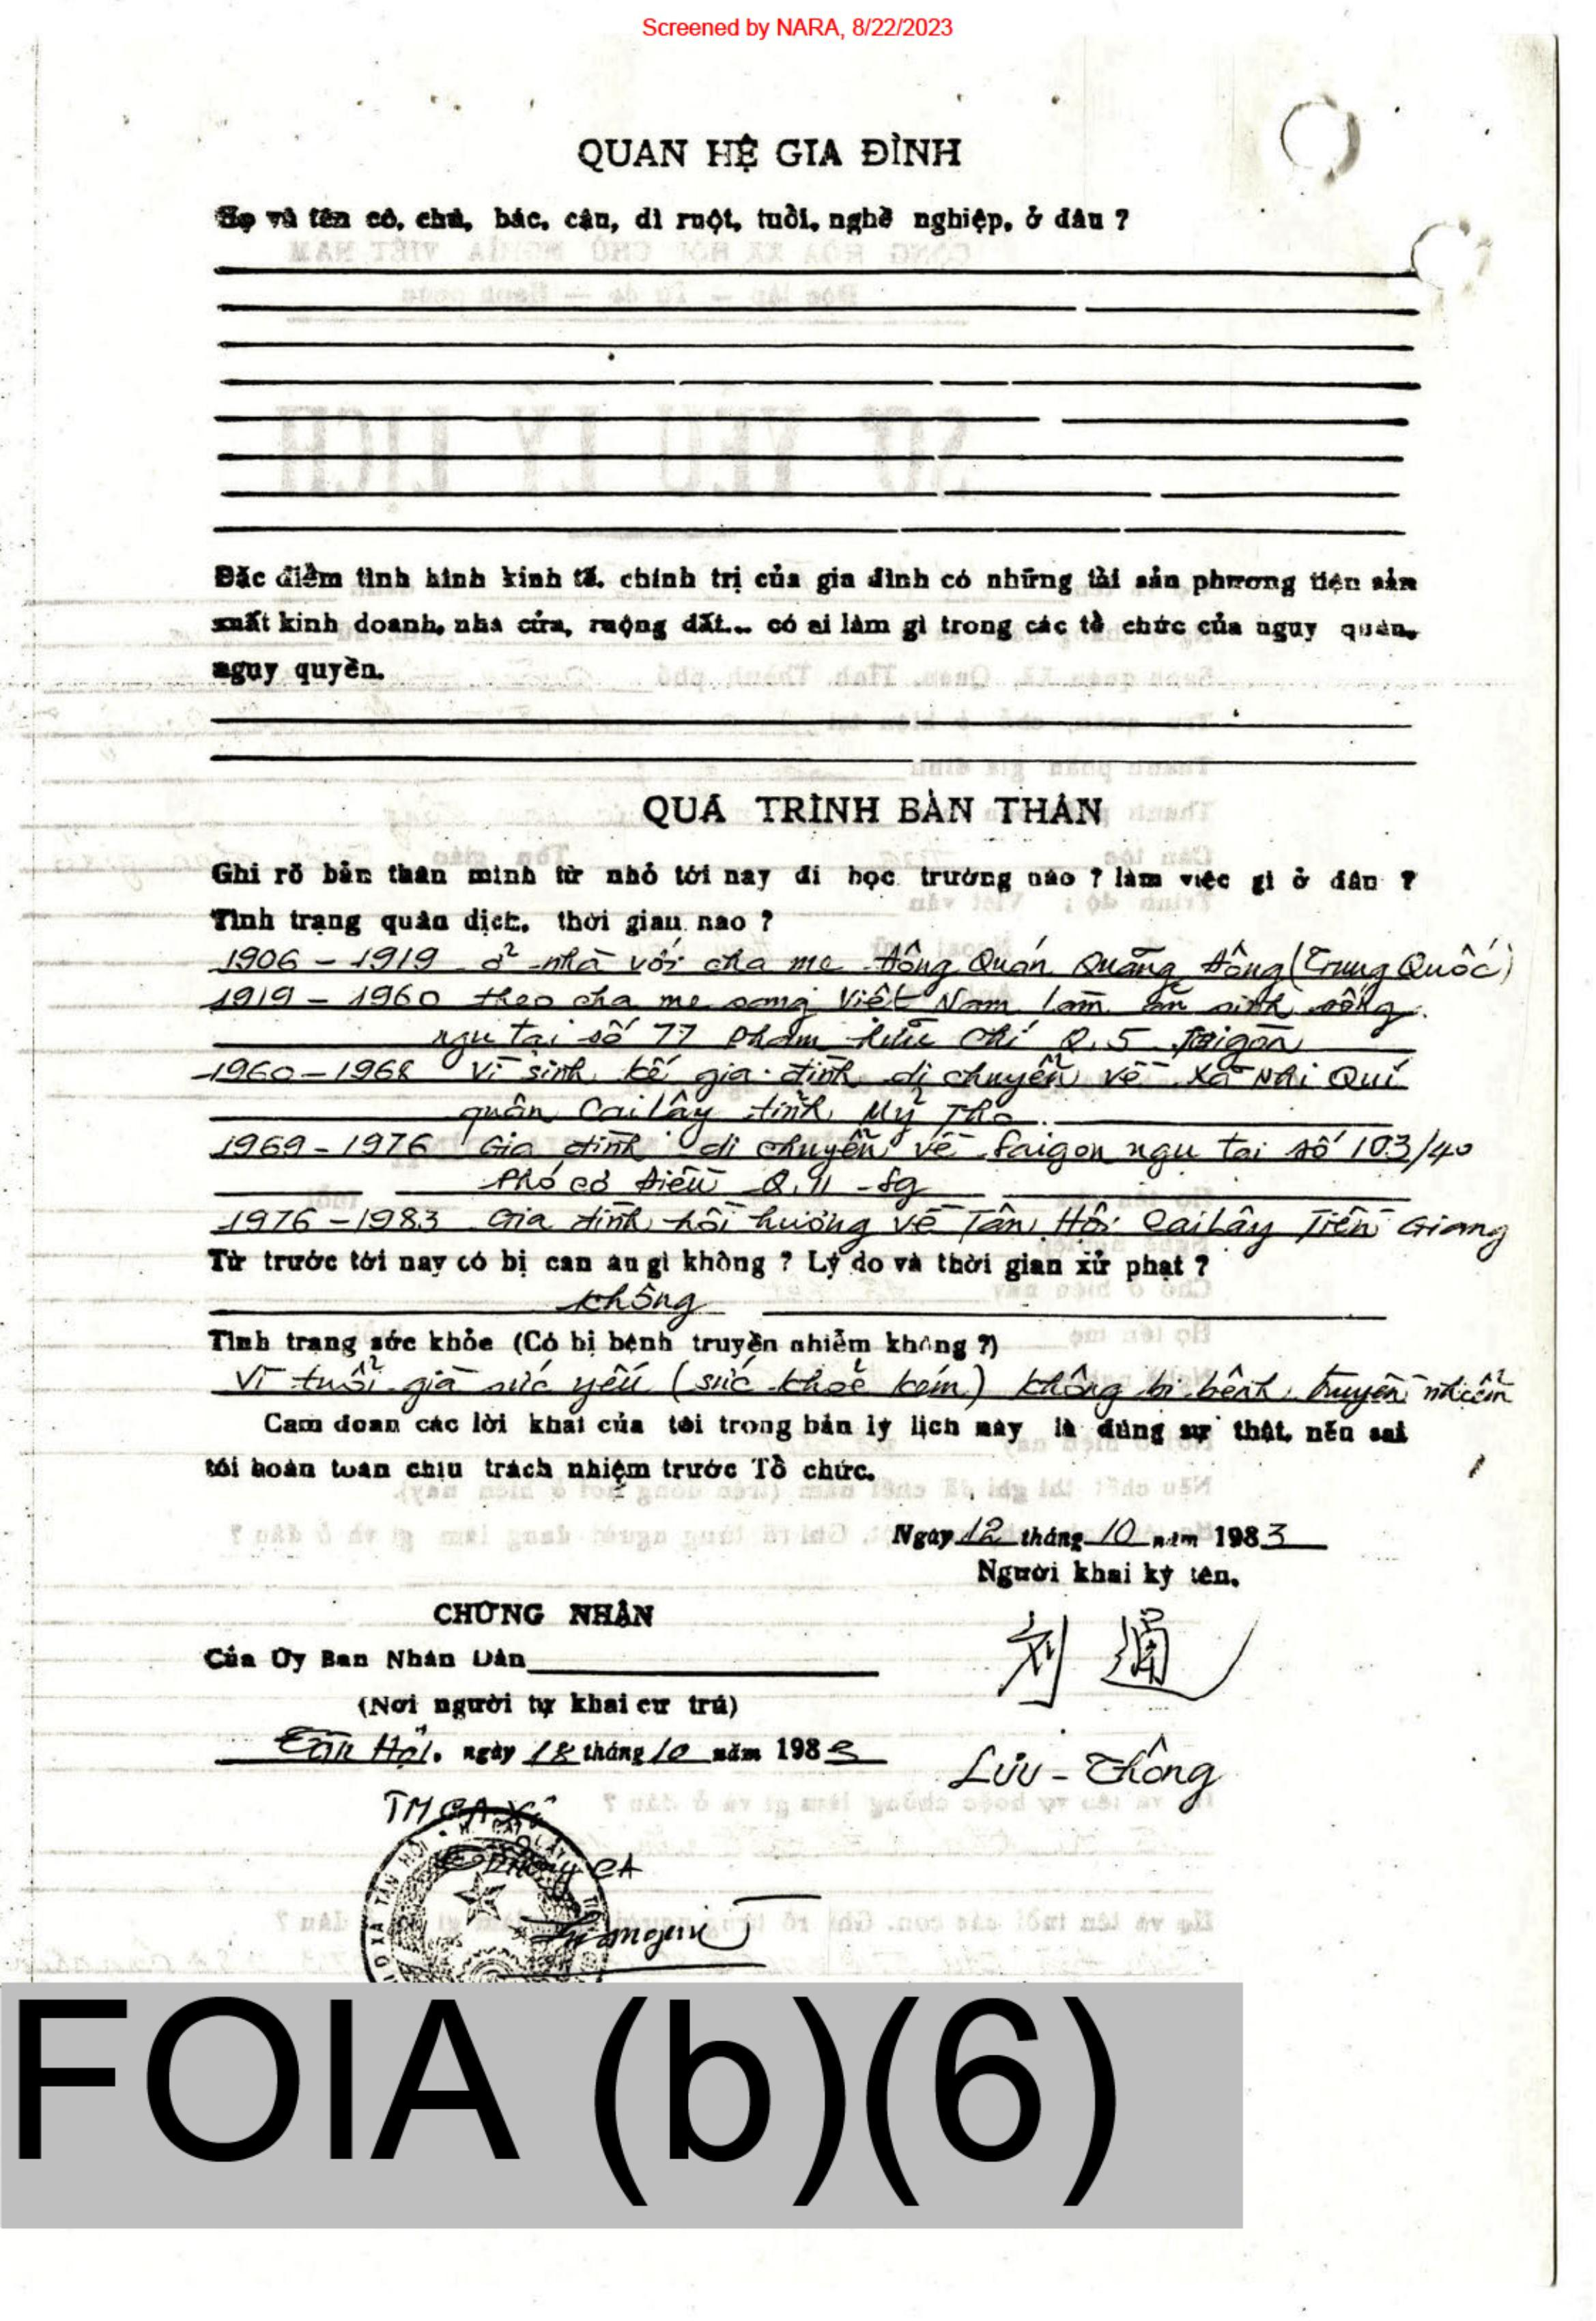 Screened by NARA, 8/22/2023
QUAN HỆ GIA ĐÌNH
Họ và tên cô, chú, bác, cậu, dì ruột, tuổi, nghề nghiệp, ở đâu ?
Đặc điểm tình hình kinh tế, chính trị của gia đình có những tài sản phương tiện sản
xuất kinh doanh, nhà cửa, ruộng đất... có ai làm gì trong các tổ chức của ngụy quân,
ngụy quyền.
QUÁ TRÌNH BẢN THÂN
Ghi rõ bản thân mình từ nhỏ tới nay đi học trường nào ? làm việc gì ở đâu ?
Tình trạng quân dịch, thời gian nào ?
1906 - 1919 ở nhà với cha mẹ Đông Quán Quảng Đông (Trung Quốc)
1919 - 1960 theo cha mẹ sang Việt Nam làm ăn sinh sống
ngụ tại số 77 Phạm Hữu Chí Q.5 Saigòn
1960 - 1968 Vì sinh kế gia đình di chuyển về xã Nhị Quí
quận Cai Lậy tỉnh Mỹ Tho
1969 - 1976 Gia đình di chuyển về Saigon ngụ tại số 103/40
Phó Cơ Điều Q.11 - Sg
1976 - 1983 Gia đình hồi hương về Tân Hội Cai Lậy Tiền Giang
Từ trước tới nay có bị can án gì không ? Lý do và thời gian xử phạt ?
không
Tình trạng sức khỏe (Có bị bệnh truyền nhiễm không ?)
Vì tuổi già sức yếu (sức khoẻ kém) không bị bệnh truyền nhiễm
Cam đoan các lời khai của tôi trong bản lý lịch này là đúng sự thật, nếu sai
tôi hoàn toàn chịu trách nhiệm trước Tổ chức.
Ngày 12 tháng 10 năm 1983
Người khai ký tên,
CHỨNG NHẬN
刘 通
Của Ủy Ban Nhân Dân
(Nơi người tự khai cư trú)
Tân Hội, ngày 18 tháng 10 năm 1983
Lưu - Thông
TM CA Xã
FOIA (b)(6)